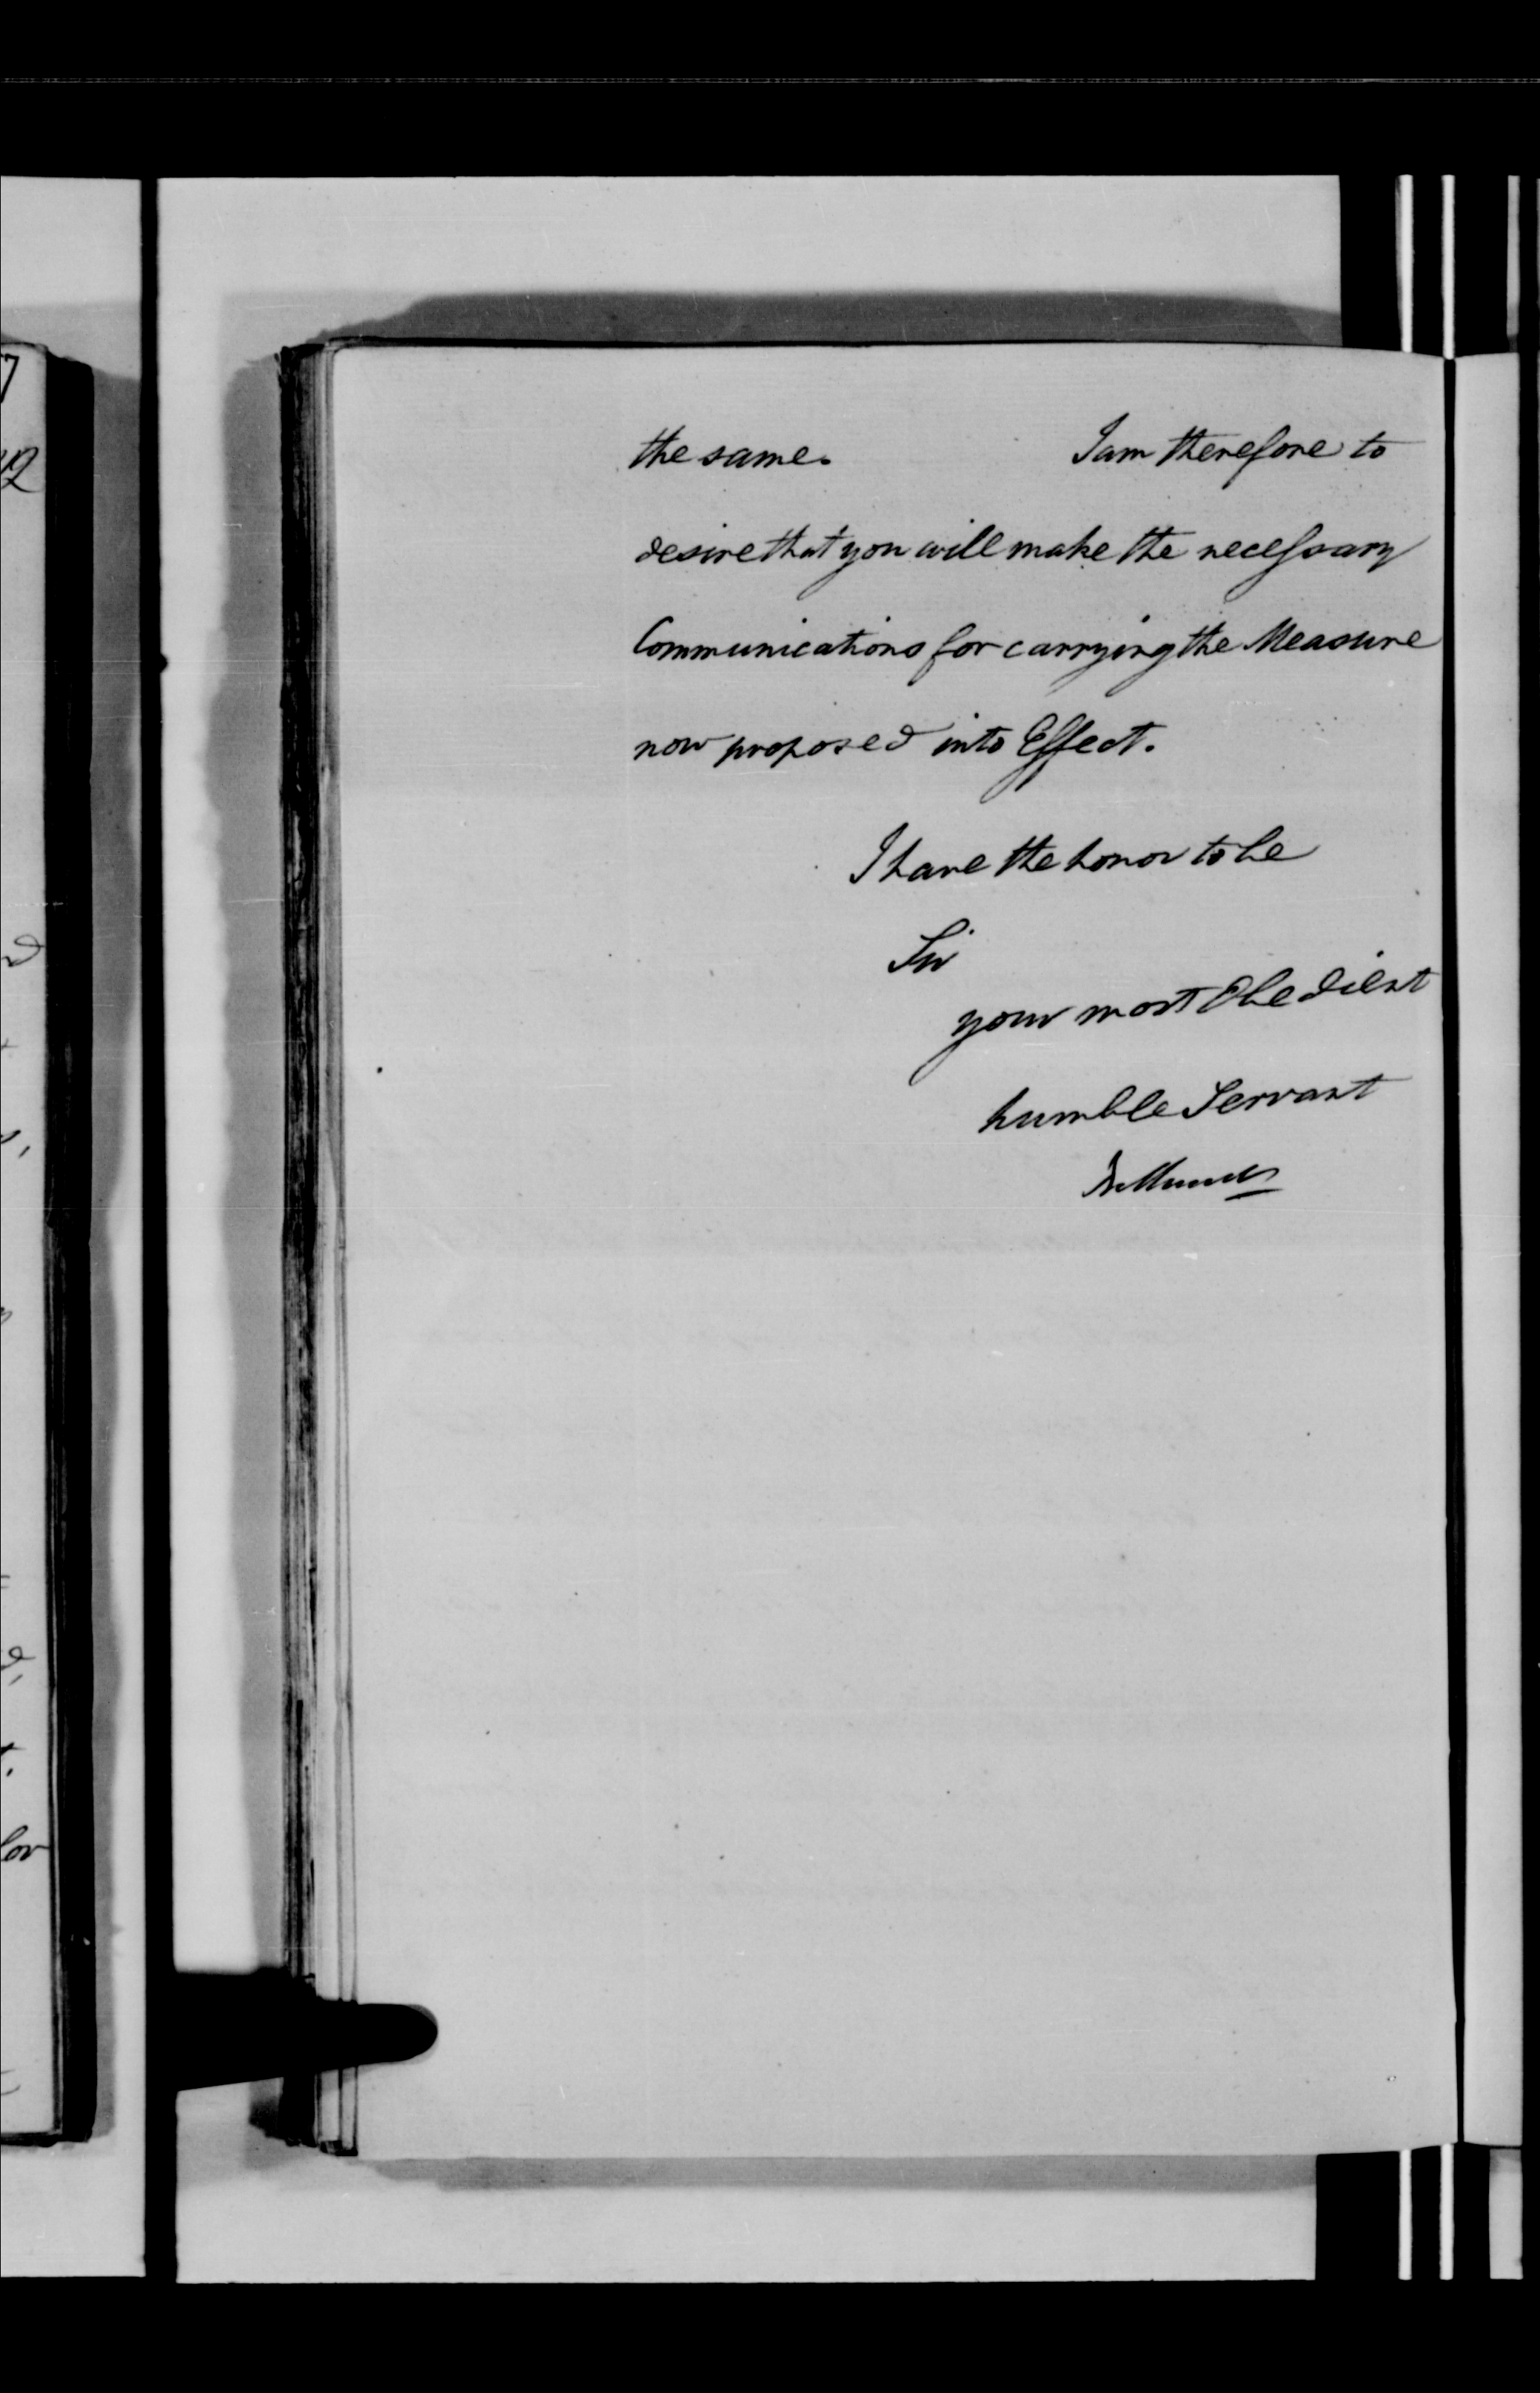 the same. I am therefore to
desire that you will make the necessary
Communications for carrying the Measure
now proposed into Effect.
I have the honor to be
Sir
your most Obedient
humble Servant